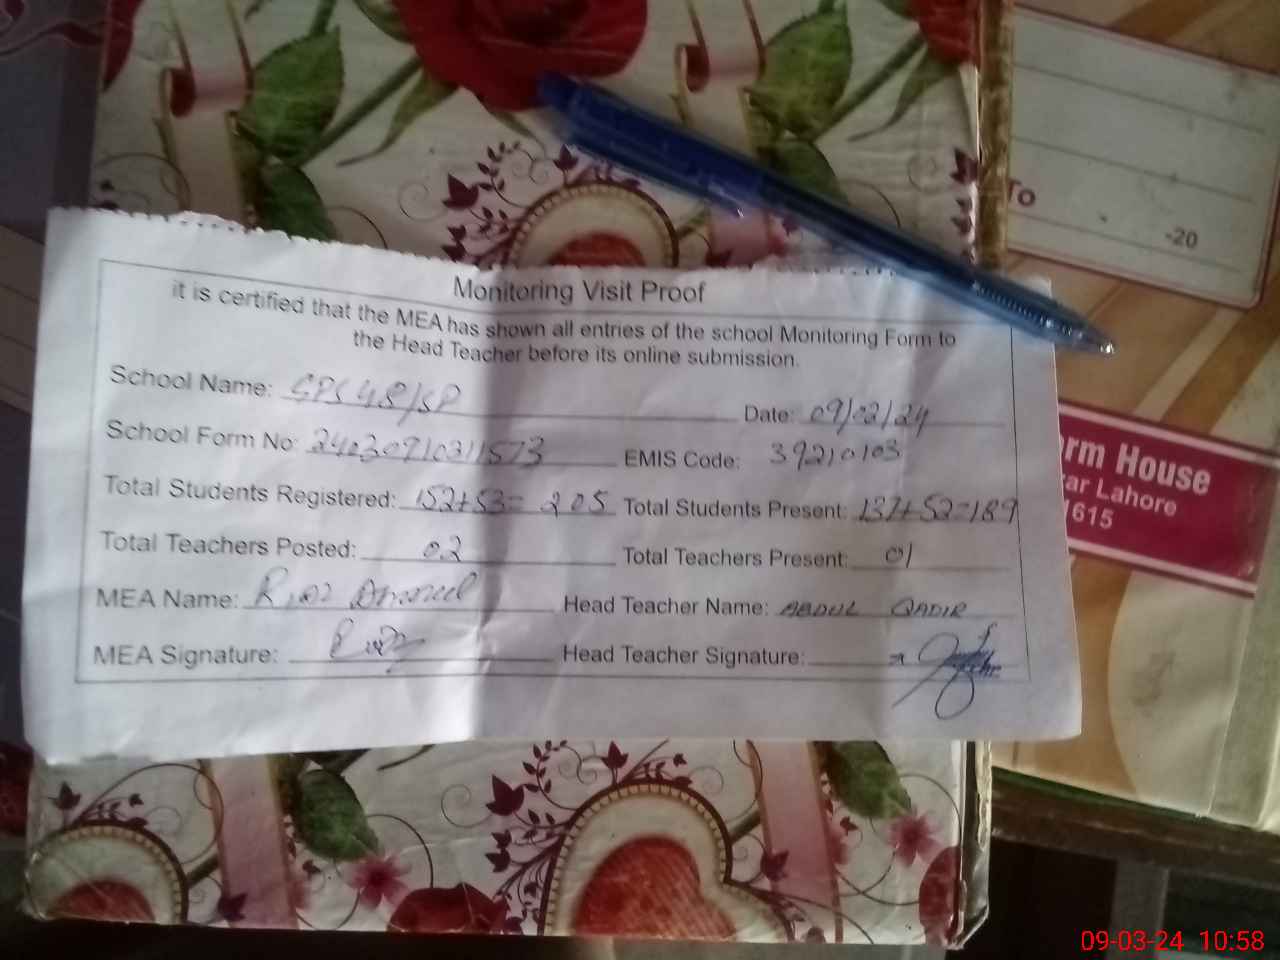 To
-20
Monitoring Visit Proof
it is certified that the MEA has shown all entries of the school Monitoring Form to
the Head Teacher before its online submission.
School Name: GPS 48/SP Date: 09/02/24
School Form No: EMIS Code: 39210103
Total Students Registered: 152+53= 205 Total Students Present: 137+52=189
Total Teachers Posted: 02 Total Teachers Present: 01
MEA Name: Head Teacher Name: ABDUL QADIR
MEA Signature: Head Teacher Signature:
rm House
ar Lahore
1615
09-03-24 10:58